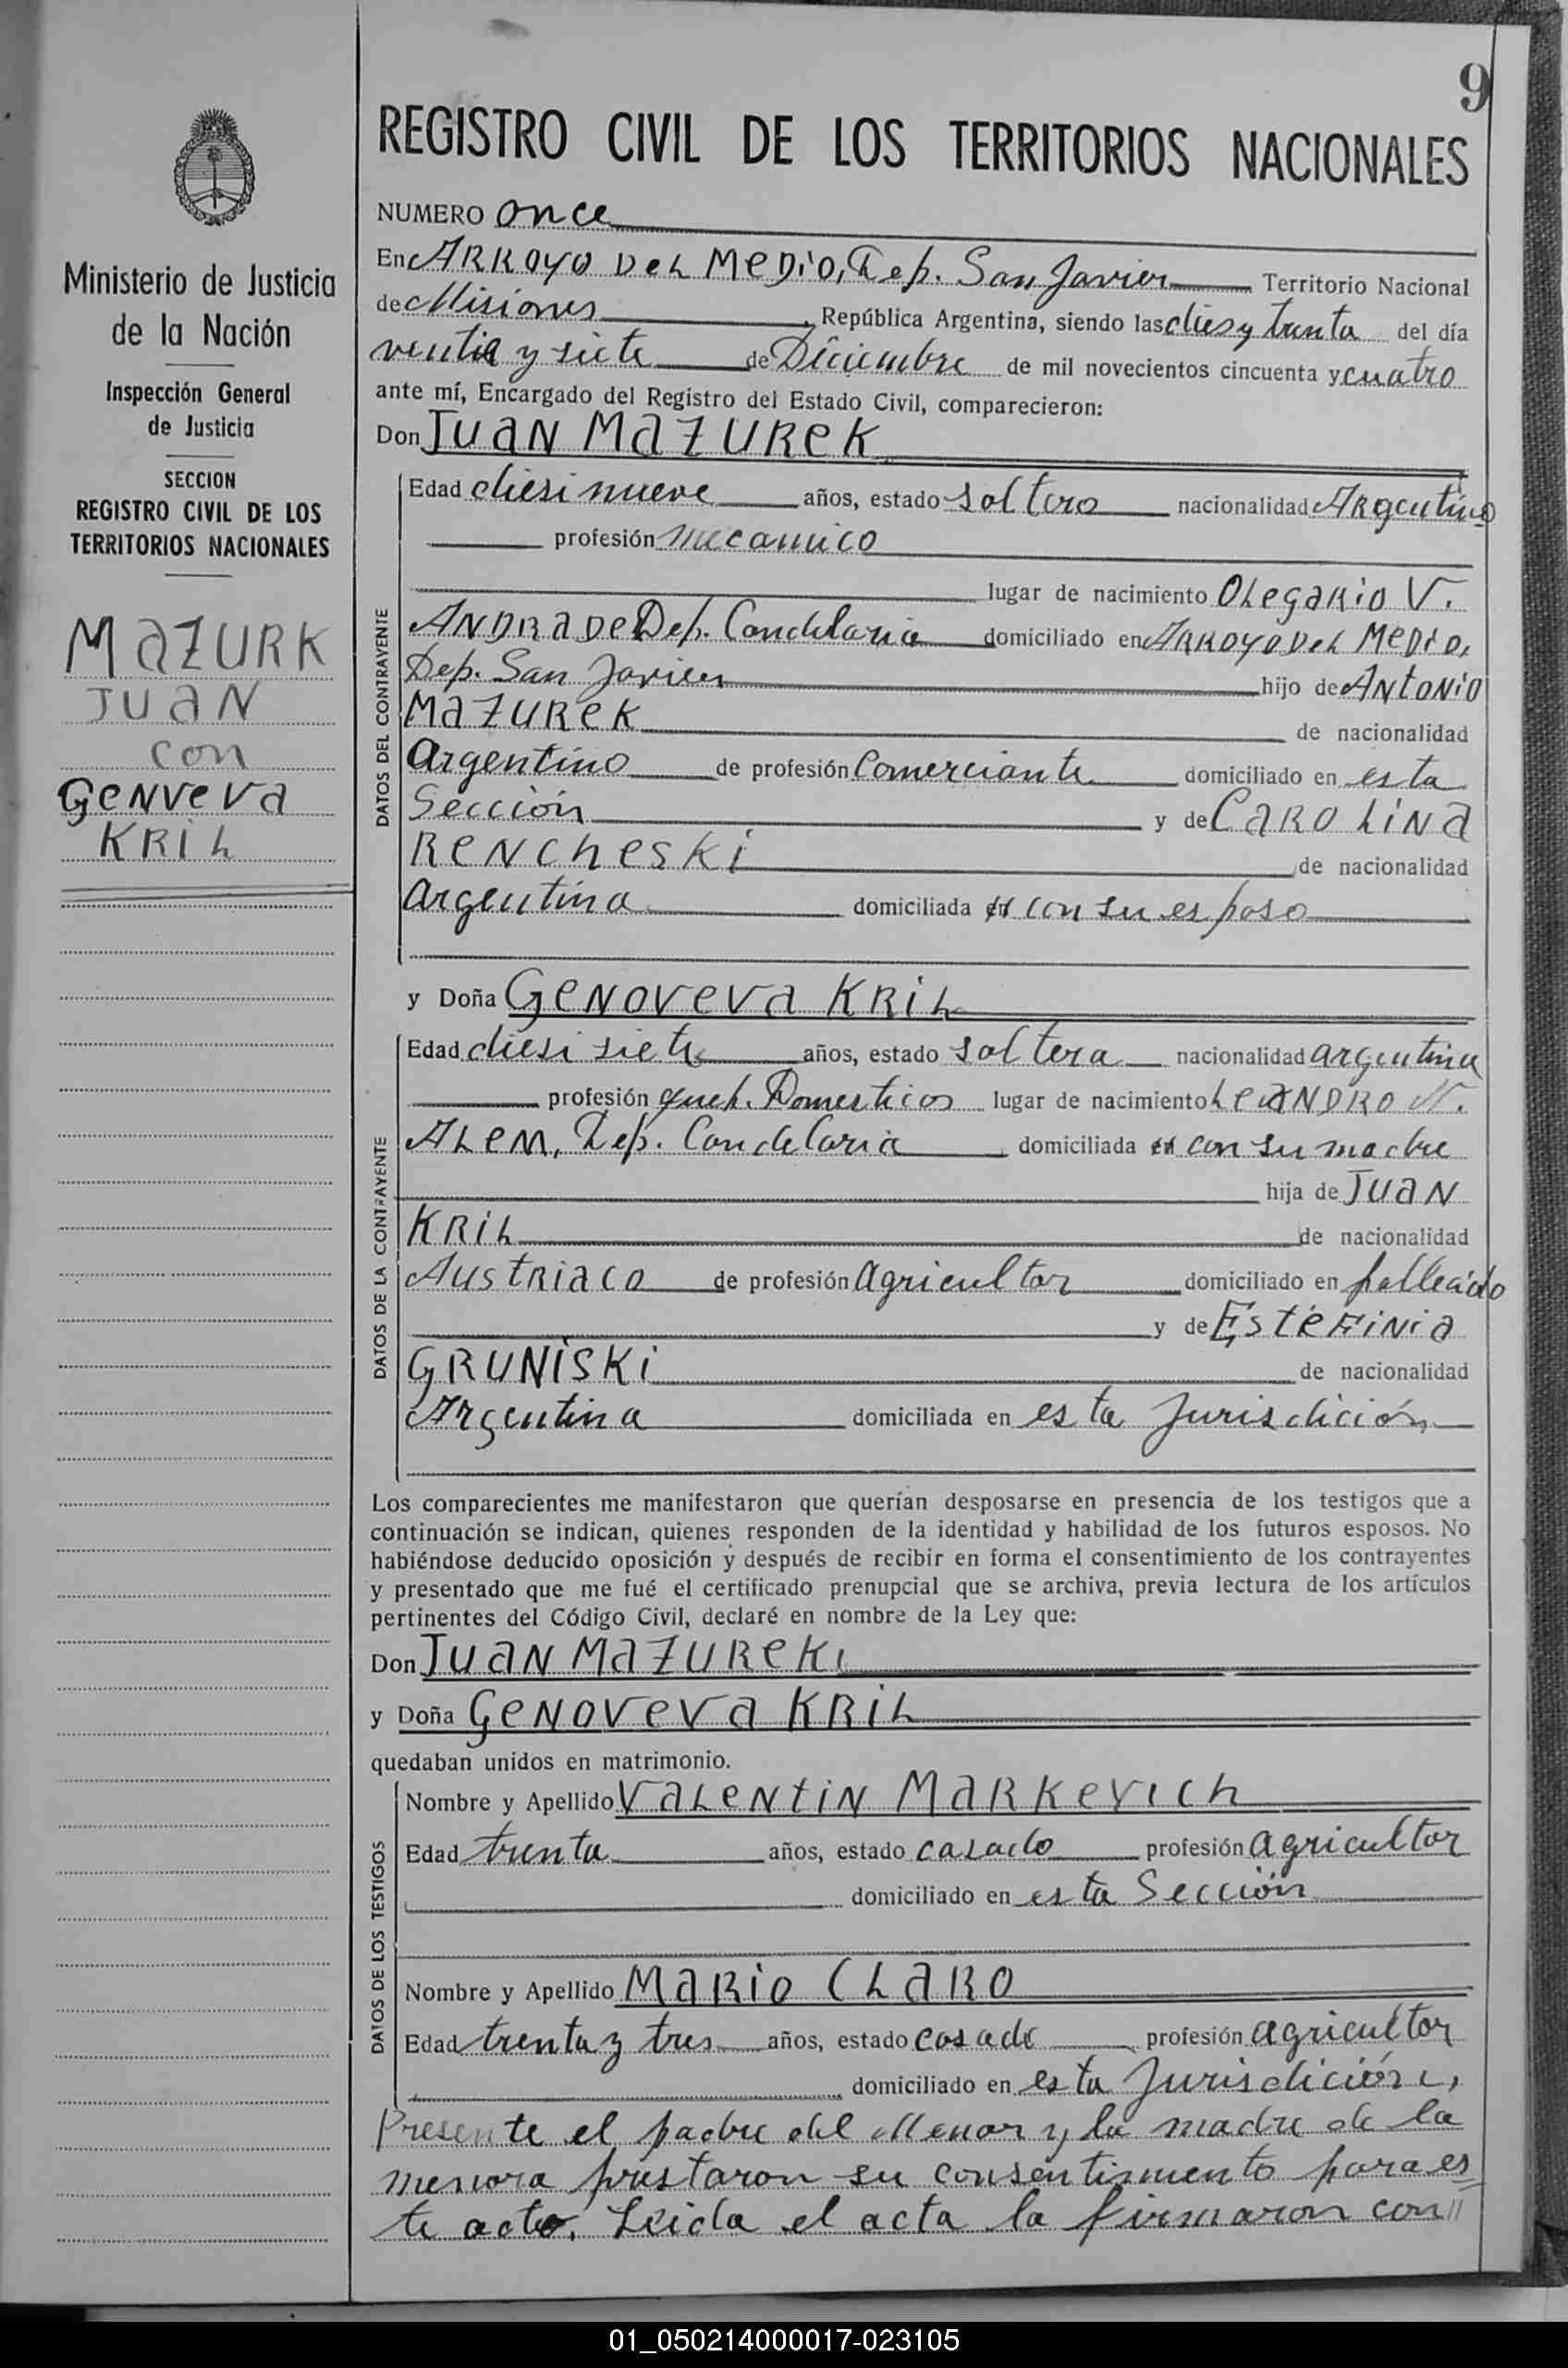 9
REGISTRO CIVIL DE LOS TERRITORIOS NACIONALES
Ministerio de Justicia
de la Nación
Inspección General
de Justicia
SECCION
REGISTRO CIVIL DE LOS
TERRITORIOS NACIONALES
MAZURK
JUAN
con
GENVEVA
KRIL
NUMERO once
En ARROYO DEL MEDIO, Dep. San Javier Territorio Nacional
de Misiones, República Argentina, siendo las dies y trenta del día
ventia y siete de Diciembre de mil novecientos cincuenta y cuatro
ante mí, Encargado del Registro del Estado Civil, comparecieron:
Don JUAN MAZUREK
DATOS DEL CONTRAYENTE
Edad diesi nueve años, estado soltero nacionalidad Argentino
profesión mecanico
lugar de nacimiento OLEGARIO V.
ANDRADE Dep. Candelaria domiciliado en ARROYO DEL MEDIO,
Dep. San Javier hijo de ANTONIO
MAZUREK de nacionalidad
Argentino de profesión Comerciante domiciliado en esta
Sección y de CAROLINA
RENCHESKI de nacionalidad
argentina domiciliada con su esposo
y Doña GENOVEVA KRIL
DATOS DE LA CONTRAYENTE
Edad diesi siete años, estado soltera nacionalidad argentina
profesión queh. Domesticos lugar de nacimiento LEANDRO N.
ALEM, Dep. Candelaria domiciliada con su madre
hija de JUAN
KRIL de nacionalidad
Austriaco de profesión agricultor domiciliado en fallecido
y de ESTEFINIA
GRUNISKI de nacionalidad
Argentina domiciliada en esta Jurisdición
Los comparecientes me manifestaron que querían desposarse en presencia de los testigos que a
continuación se indican, quienes responden de la identidad y habilidad de los futuros esposos. No
habiéndose deducido oposición y después de recibir en forma el consentimiento de los contrayentes
y presentado que me fué el certificado prenupcial que se archiva, previa lectura de los artículos
pertinentes del Código Civil, declaré en nombre de la Ley que:
Don JUAN MAZUREKI
y Doña GENOVEVA KRIL
quedaban unidos en matrimonio.
DATOS DE LOS TESTIGOS
Nombre y Apellido VALENTIN MARKEVICH
Edad trenta años, estado casado profesión agricultor
domiciliado en esta Sección
Nombre y Apellido MARIO CLARO
Edad trenta y tres años, estado casado profesión agricultor
domiciliado en esta Jurisdición,
Presente el padre del Menor y la madre de la
menora prestaron su consentimento para es
te acto. Leida el acta la firmaron con //
01_050214000017-023105